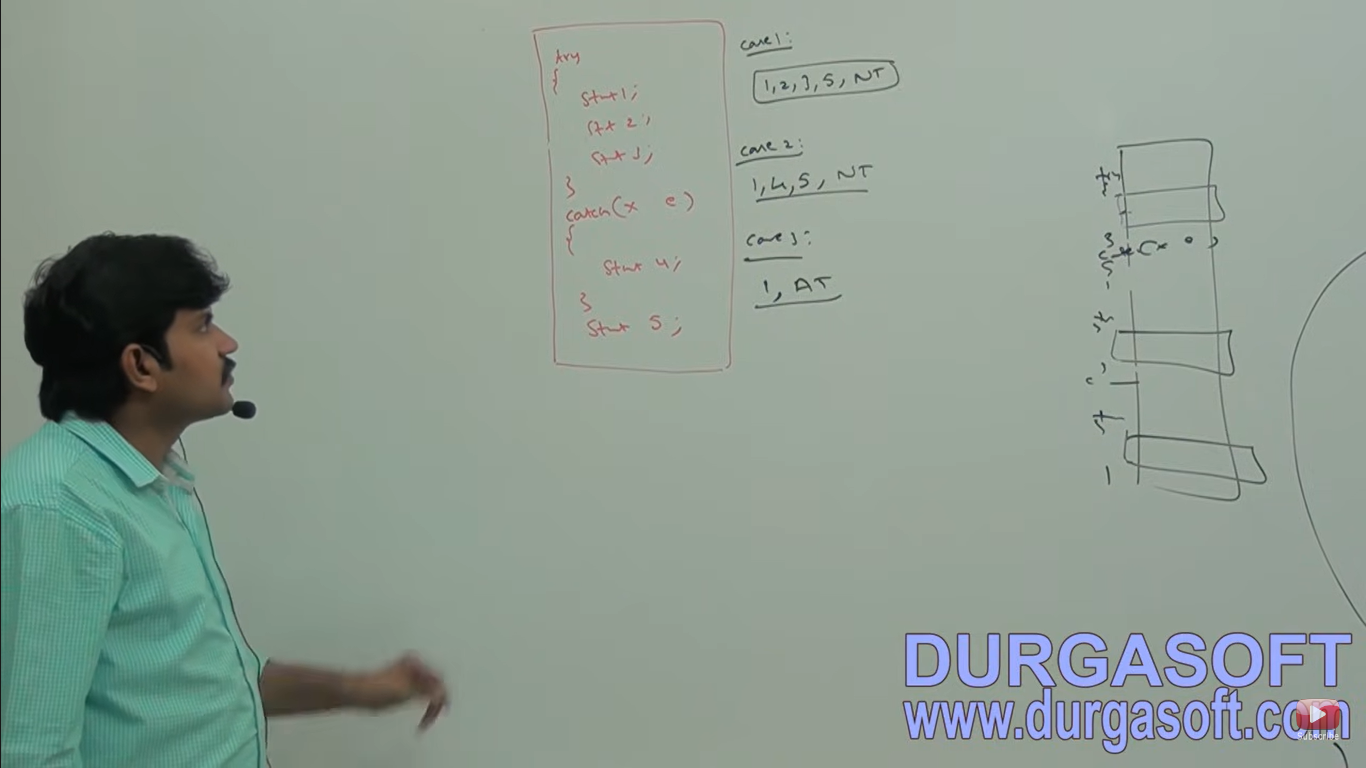 try
{
stmt 1;
stt 2;
stt 3;
}
catch(x e)
{
stmt 4;
}
stmt 5;
case 1:
1,2,3,5, NT
case 2:
1,4,5, NT
case 3:
1, AT
try
DURGASOFT
www.durgasoft.com
Subscribe